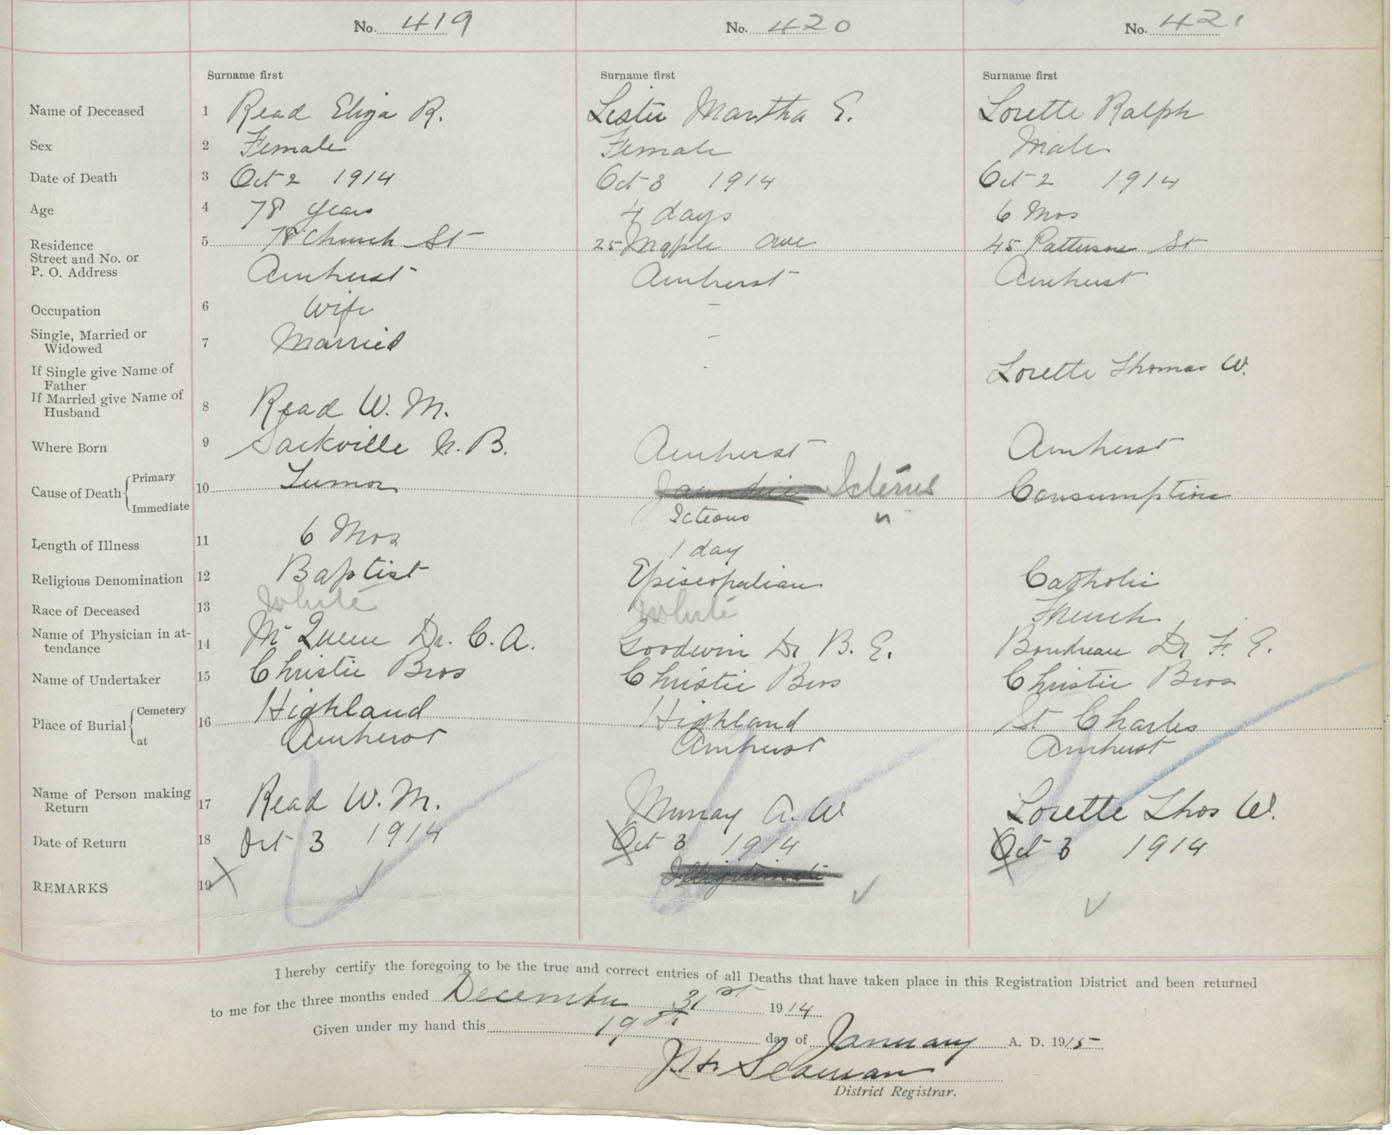 No. 419 No. 420 No. 421
Surname first Surname first Surname first
Name of Deceased 1 Read Eliza R. Lister Martha E. Lorette Ralph
Sex 2 Female Female Male
Date of Death 3 Oct 2 1914 Oct 3 1914 Oct 2 1914
Age 4 78 years 4 days 6 Mos
Residence 5 78 Church St 25 Maple Ave 45 Patterson St
Street and No. or
P. O. Address Amherst Amherst Amherst
Occupation 6 Wife -
Single, Married or
Widowed 7 Married -
If Single give Name of
Father Lorette Thomas W.
If Married give Name of
Husband 8 Read W. M.
Where Born 9 Sackville N. B. Amherst Amherst
Cause of Death Primary 10 Tumor Jaundice Icterus Consumption
Immediate Icteous "
Length of Illness 11 6 Mos 1 day
Religious Denomination 12 Baptist Episcopalian Catholic
Race of Deceased 13 White White French
Name of Physician in at-
tendance 14 McQueen Dr. C. A. Goodwin Dr B. E. Boudreau Dr F. E.
Name of Undertaker 15 Christie Bros Christie Bros Christie Bros
Place of Burial Cemetery 16 Highland Highland St Charles
at Amherst Amherst Amherst
Name of Person making
Return 17 Read W. M. Murray A. W Lorette Thos W.
Date of Return 18 Oct 3 1914 Oct 3 1914 Oct 3 1914
REMARKS 19 Illigitimate
I hereby certify the foregoing to be the true and correct entries of all Deaths that have taken place in this Registration District and been returned
to me for the three months ended December 31st 1914
Given under my hand this 19th day of January A. D. 1915
Seaman
District Registrar.